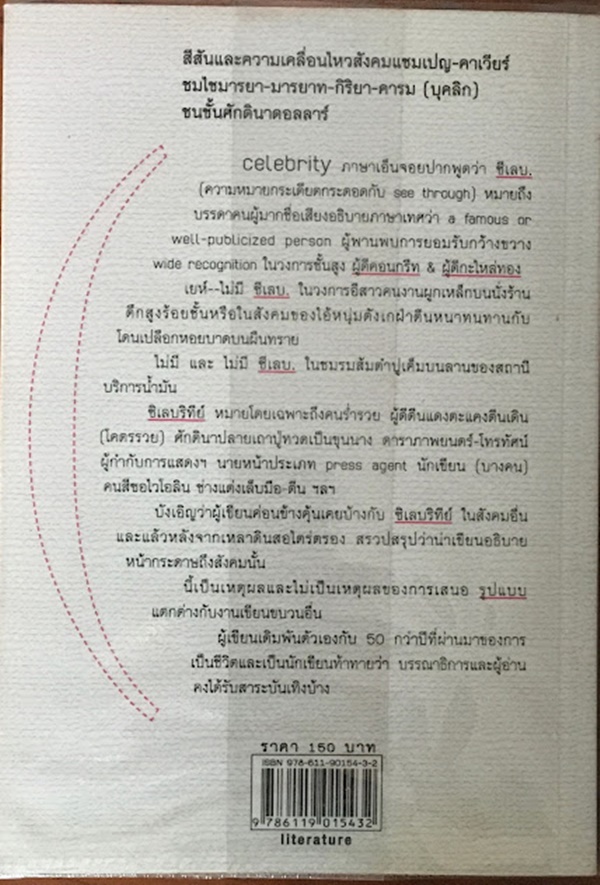 สีสันและความเคลื่อนไหวสังคมแชมเปญ-คาเวียร์
ชมไชมารยา-มารยาท-กิริยา-คารม (บุคลิก)
ชนชั้นศักดินาดอลลาร์
celebrity ภาษาเอ็นจอยปากพูดว่า ซีเลบ.
(ความหมายกระเดียดกระดอดกับ see through) หมายถึง
บรรดาคนผู้มากชื่อเสียงอธิบายภาษาเทศว่า a famous or
well-publicized person ผู้พานพบการยอมรับกว้างขวาง
wide recognition ในวงการชั้นสูง ผู้ดีคอนกรีท & ผู้ดีกะไหล่ทอง
เยห์--ไม่มี ซีเลบ. ในวงการอีสาวคนงานผูกเหล็กบนนั่งร้าน
ตึกสูงร้อยชั้นหรือในสังคมของไอ้หนุ่มดังเกฝ่าตีนหนาทนทานกับ
โดนเปลือกหอยบาดบนผืนทราย
ไม่มี และ ไม่มี ซีเลบ. ในชมรมส้มตำปูเค็มบนลานของสถานี
บริการน้ำมัน
ซิเลบริทีย์ หมายโดยเฉพาะถึงคนร่ำรวย ผู้ดีตีนแดงตะแคงตีนเดิน
(โคตรรวย) ศักดินาปลายเถาปู่ทวดเป็นขุนนาง ดาราภาพยนตร์-โทรทัศน์
ผู้กำกับการแสดงฯ นายหน้าประเภท press agent นักเขียน (บางคน)
คนสีซอไวโอลิน ช่างแต่งเล็บมือ-ตีน ฯลฯ
บังเอิญว่าผู้เขียนค่อนข้างคุ้นเคยบ้างกับ ซิเลบริทีย์ ในสังคมอื่น
และแล้วหลังจากเหลาดินสอไตร่ตรอง สรวปสรุปว่าน่าเขียนอธิบาย
หน้ากระดาษถึงสังคมนั้น
นี้เป็นเหตุผลและไม่เป็นเหตุผลของการเสนอ รูปแบบ
แตกต่างกับงานเขียนขบวนอื่น
ผู้เขียนเดิมพันตัวเองกับ 50 กว่าปีที่ผ่านมาของการ
เป็นชีวิตและเป็นนักเขียนท้าทายว่า บรรณาธิการและผู้อ่าน
คงได้รับสาระบันเทิงบ้าง
ราคา 150 บาท
ISBN 978-611-90154-3-2
9 786119 015432
literature